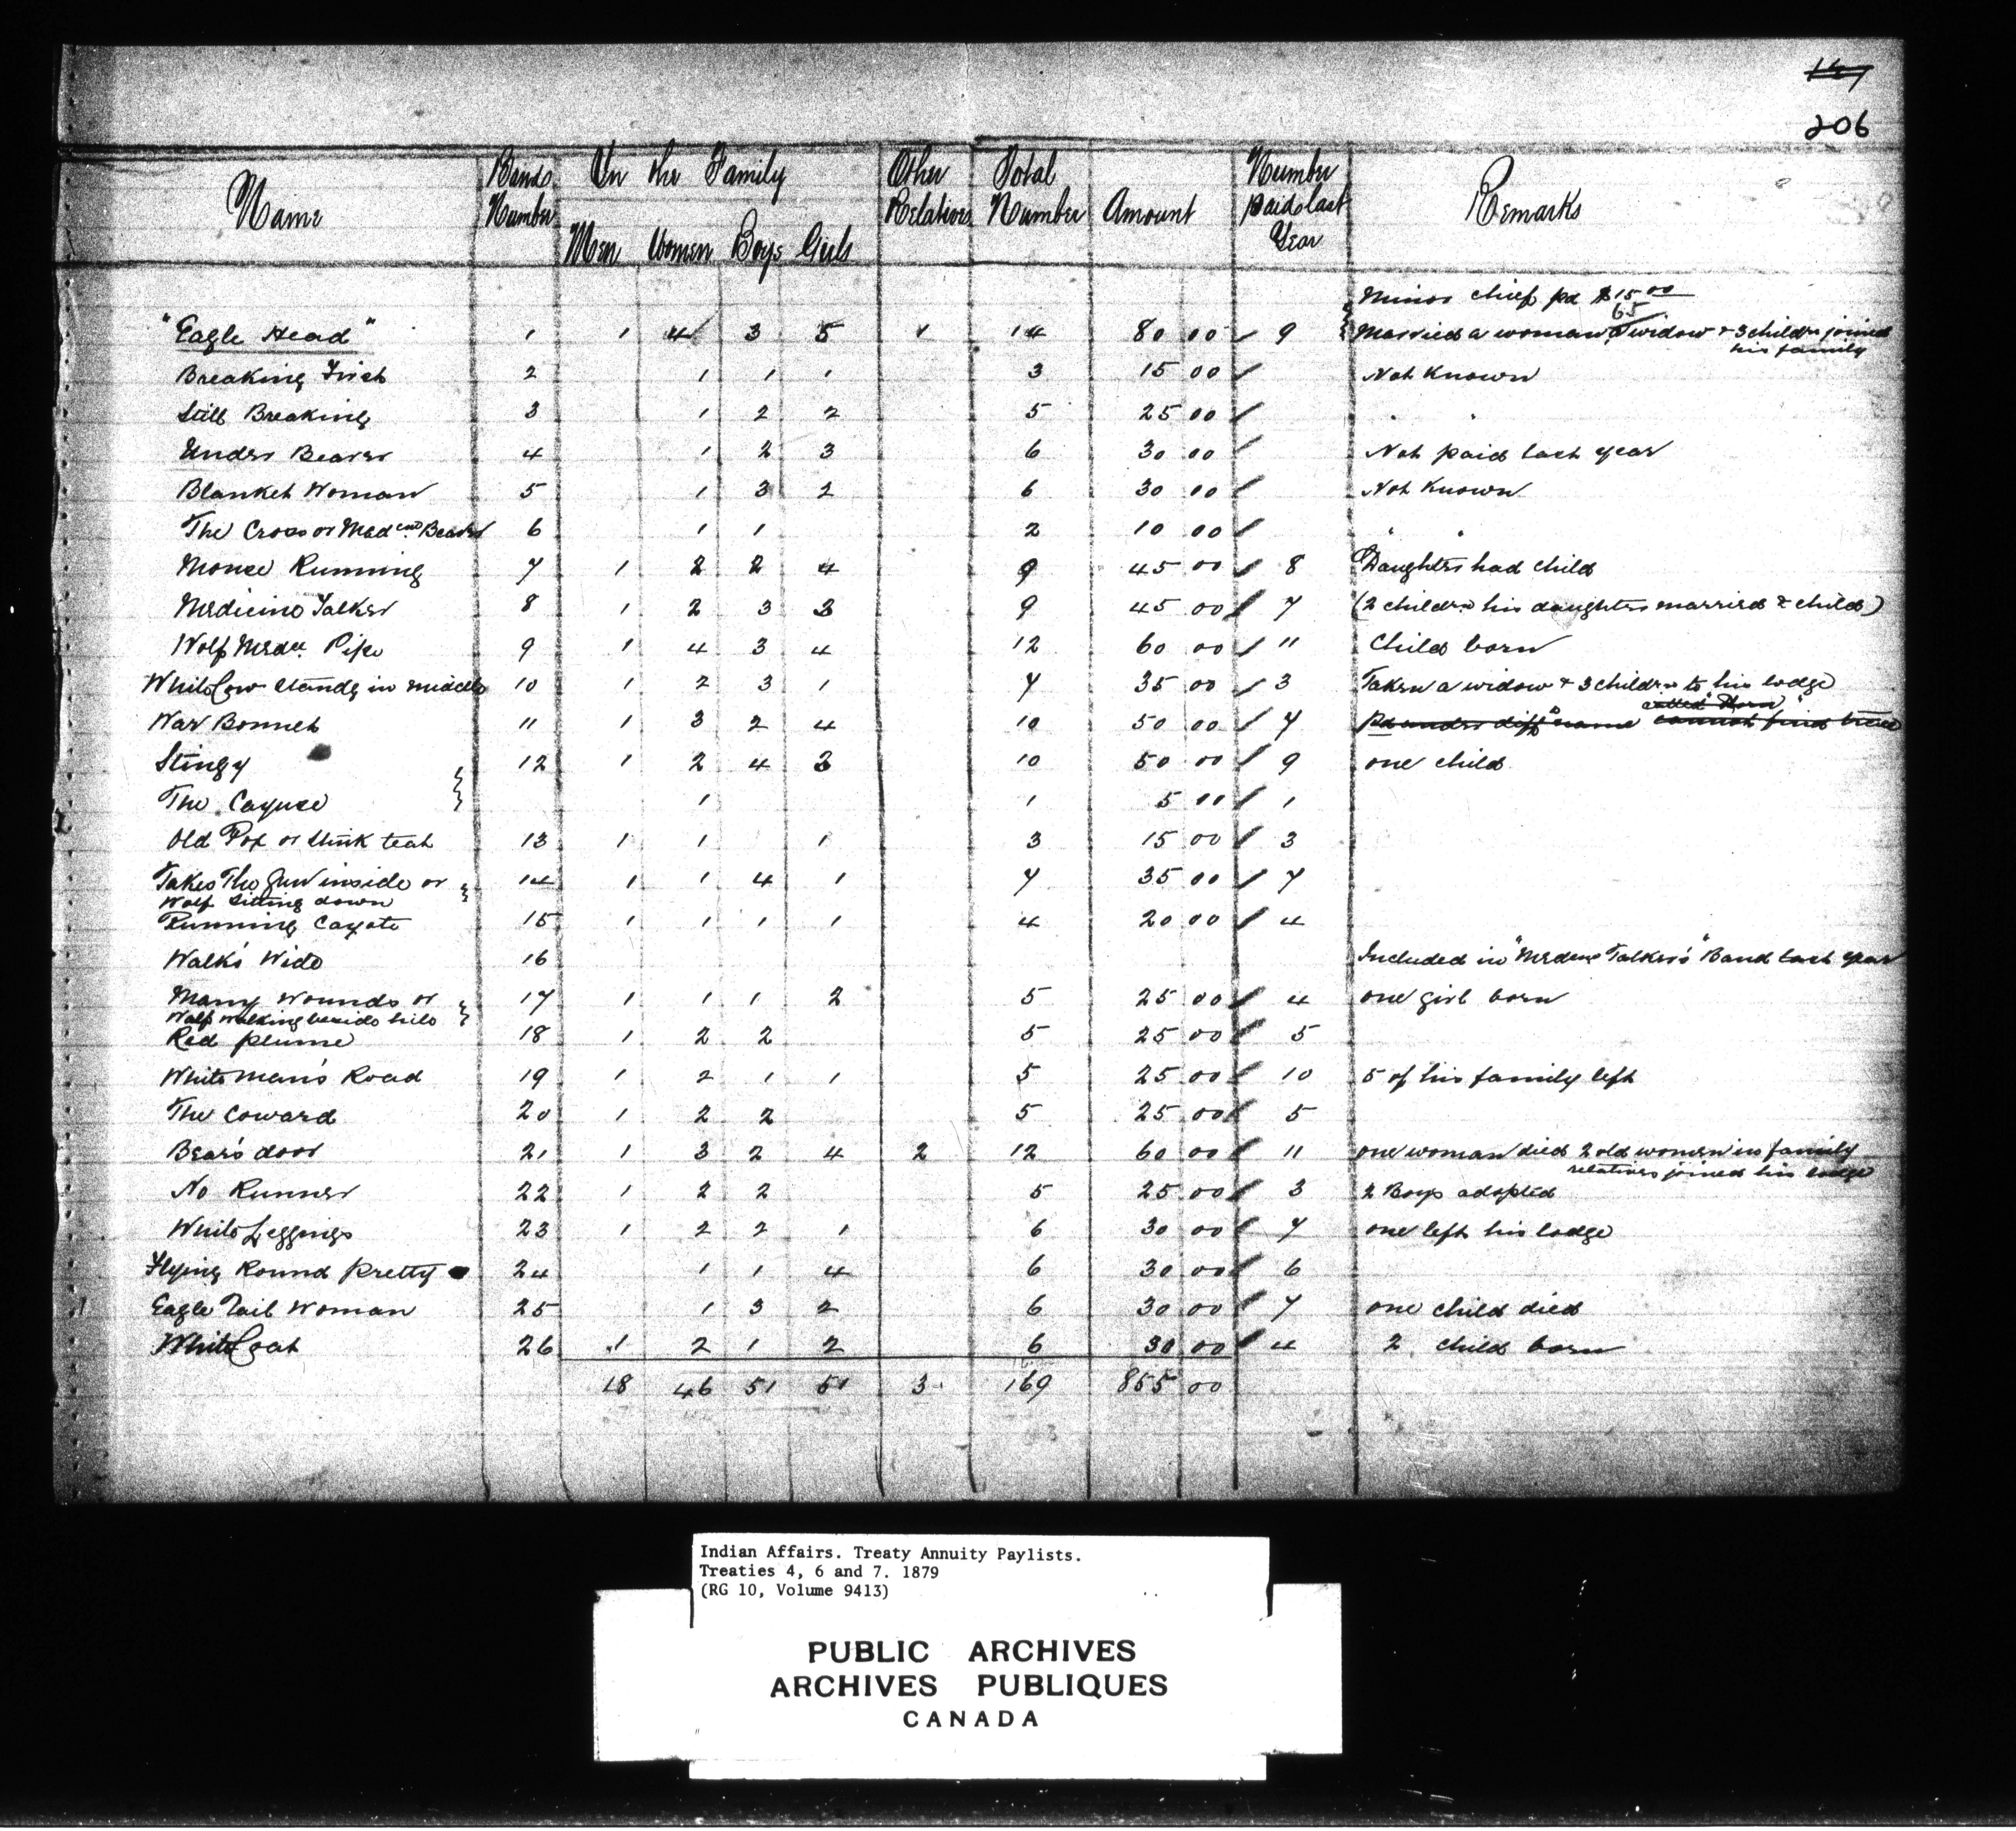 147
206
Name Bands Number In the Family Men Women Boys Girls Other Relatives Total Number Amount Number paid last Year Remarks
Minor chief pd $15.00
65
"Eagle Head" 1 1 4 3 5 1 14 80 00 9 Married a woman a widow & 3 childn joined
his family
Breaking First 2 1 1 1 3 15 00 Not Known
Still Breaking 3 1 2 2 5 25 00 " "
Under Beaver 4 1 2 3 6 30 00 Not paid last year
Blanket Woman 5 1 3 2 6 30 00 Not Known
The Cross or Medcne Beaver 6 1 1 2 10 00 " "
Mouse Running 7 1 2 2 4 9 45 00 8 Daughter had child
Medicine Talker 8 1 2 3 3 9 45 00 7 (2 childrn his daughters married & child)
Wolf Medn Pipe 9 1 4 3 4 12 60 00 11 Child born
White Cow Standg in middle 10 1 2 3 1 7 35 00 3 Taken a widow & 3 childrn to his lodge
called "Horn"
War Bonnet 11 1 3 2 4 10 50 00 7 Pd under diff name cannot find
Stingy 12 1 2 4 3 10 50 00 9 one child
The Cayuse 1 1 5 00 1
Old Fox or Stink teat 13 1 1 1 3 15 00 3
Takes The Gun inside or 14 1 1 4 1 7 35 00 7
Wolf Sitting down
Running Cayote 15 1 1 1 1 4 20 00 4
Walk's Wide 16 Included in "Medcne Talker's" Band last year
Many Wounds or 17 1 1 1 2 5 25 00 4 one girl born
Wolf Walking beside hill
Red plume 18 1 2 2 5 25 00 5
White man's Road 19 1 2 1 1 5 25 00 10 5 of his family left
The Coward 20 1 2 2 5 25 00 5
Bear's door 21 1 3 2 4 2 12 60 00 11 one woman died 2 old women in family
relatives joined his lodge
No Runner 22 1 2 2 5 25 00 3 2 Boys adopted
White Leggings 23 1 2 2 1 6 30 00 7 one left his lodge
Flying Round pretty 24 1 1 4 6 30 00 6
Eagle Tail Woman 25 1 3 2 6 30 00 7 one child died
White Coat 26 1 2 1 2 6 30 00 4 2 child born
18 46 51 51 3 169 855 00
Indian Affairs. Treaty Annuity Paylists.
Treaties 4, 6 and 7. 1879
(RG 10, Volume 9413)
PUBLIC ARCHIVES
ARCHIVES PUBLIQUES
CANADA